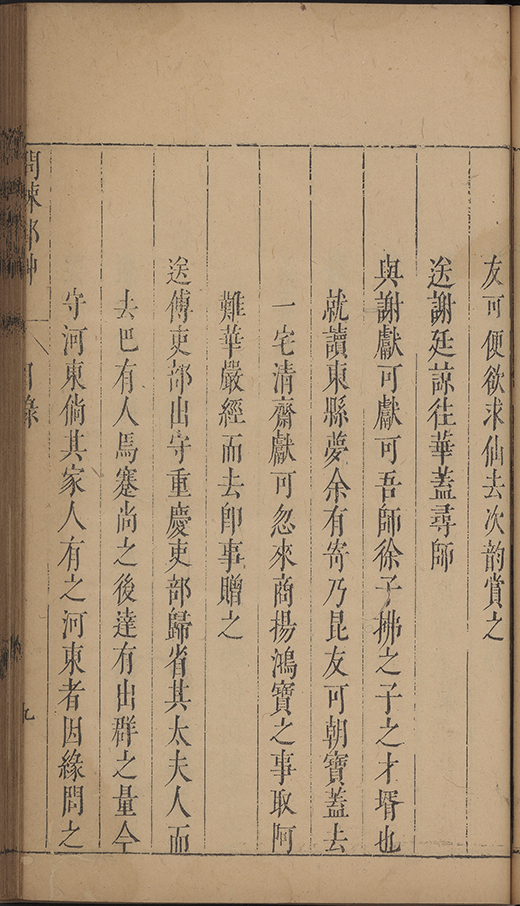 友可便欲求仙去次韵賞之
送謝廷諒往華蓋尋師
與謝獻可獻可吾師徐子拂之子之才壻也
就讀東縣夢余有寄乃昆友可朝寶蓋去
一宅清齋獻可忽來商揚鴻寶之事取阿
難華嚴經而去卽事贈之
送傅吏部出守重慶吏部歸省其太夫人而
去巴有人馬蹇尚之後達有出群之量今
守河東倘其家人有之河東者因緣問之
問棘郵艸
目錄
九